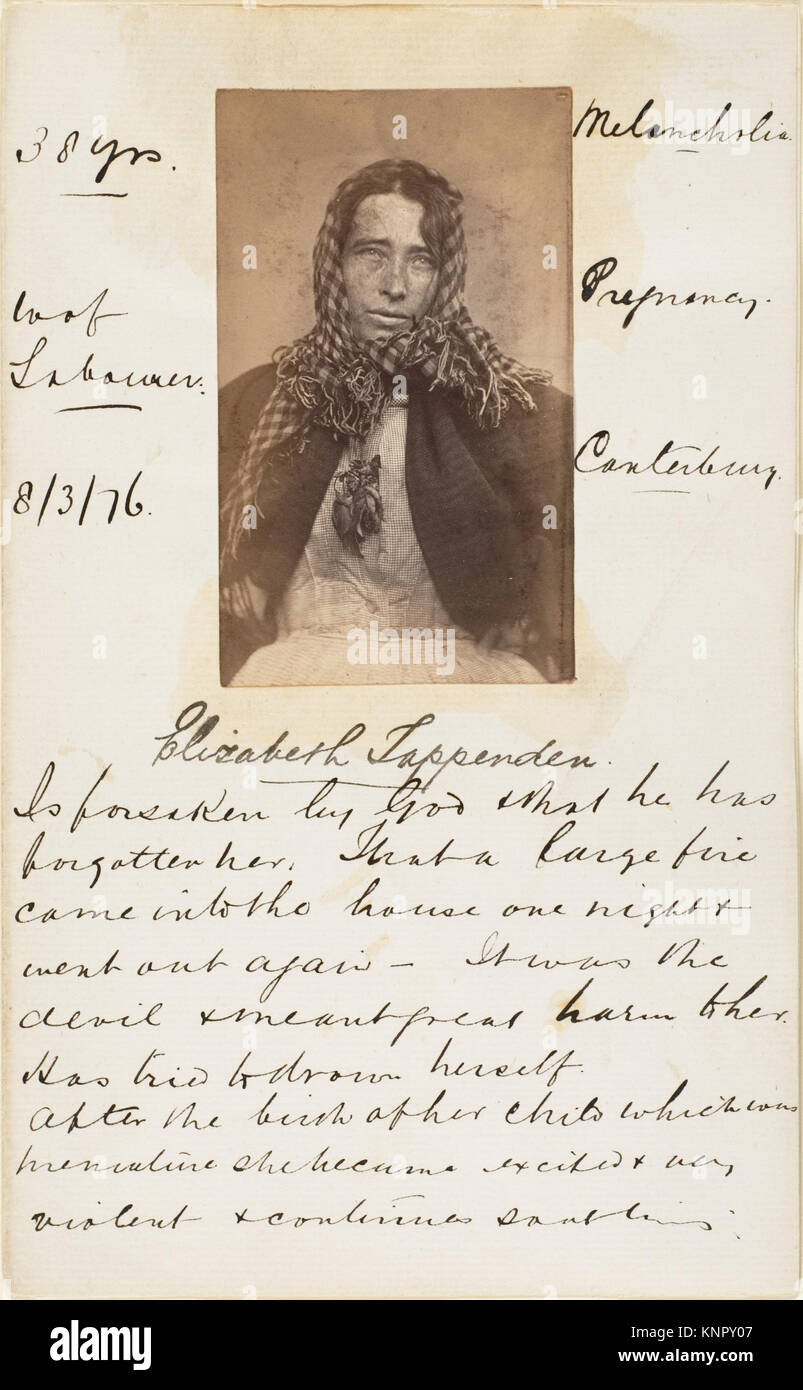 38 yrs.
Melancholia.
w of
Labourer.
Pregnancy.
8/3/76.
Canterbury.
Elizabeth Tappenden.
Is forsaken by God & that he has
forgotten her. That a large fire
came into the house one night &
went out again – It was the
devil & meant great harm to her.
Has tried to drown herself.
After the birth of her child which was
premature she became excited & very
violent & continues so at times.
alamy
alamy
Image ID: KNPY07
www.alamy.com